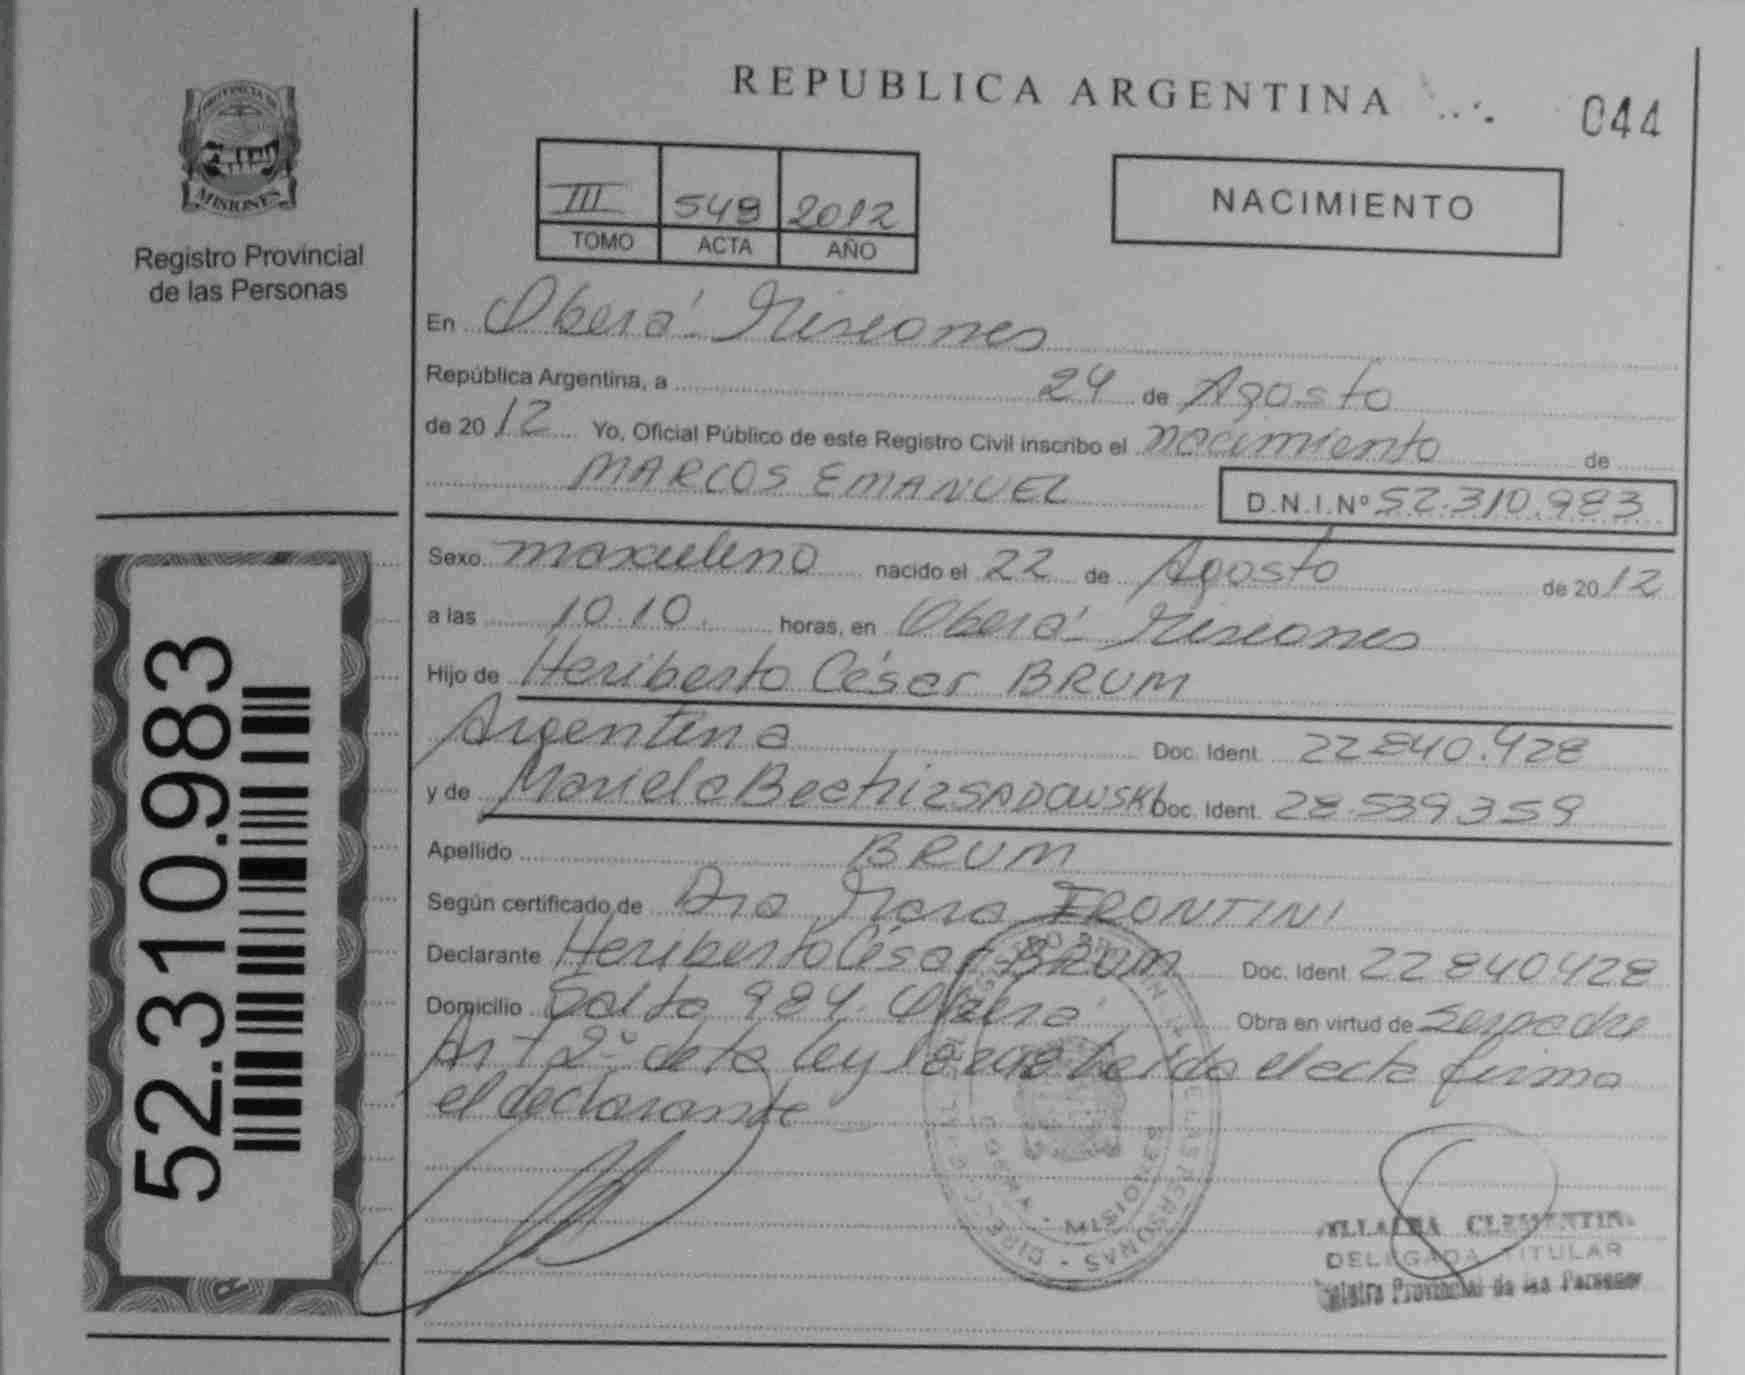 REPUBLICA ARGENTINA
044
PROVINCIA DE
MISIONES
Registro Provincial
de las Personas
III 549 2012
TOMO ACTA AÑO
NACIMIENTO
En Oberá Misiones
República Argentina, a 24 de Agosto
de 2012 Yo, Oficial Público de este Registro Civil inscribo el nacimiento de
MARCOS EMANUEL D.N.I.Nº 52.310.983
Sexo masculino nacido el 22 de Agosto de 2012
a las 10.10. horas, en Oberá Misiones
Hijo de Heriberto César BRUM
Argentina Doc. Ident. 22840.428
y de Mariela Beatriz SADOWSKI Doc. Ident. 28.539.359
Apellido BRUM
Según certificado de Dra Mara FRONTINI
Declarante Heriberto César BRUM Doc. Ident. 22840428
Domicilio Salta 984. Oberá Obra en virtud de Ser padre
Art 2º de la ley leida el acta firma
el declarante
52.310.983
MISIONES
CLEMENTINA
DELEGADA TITULAR
Registro Provincial de las Personas